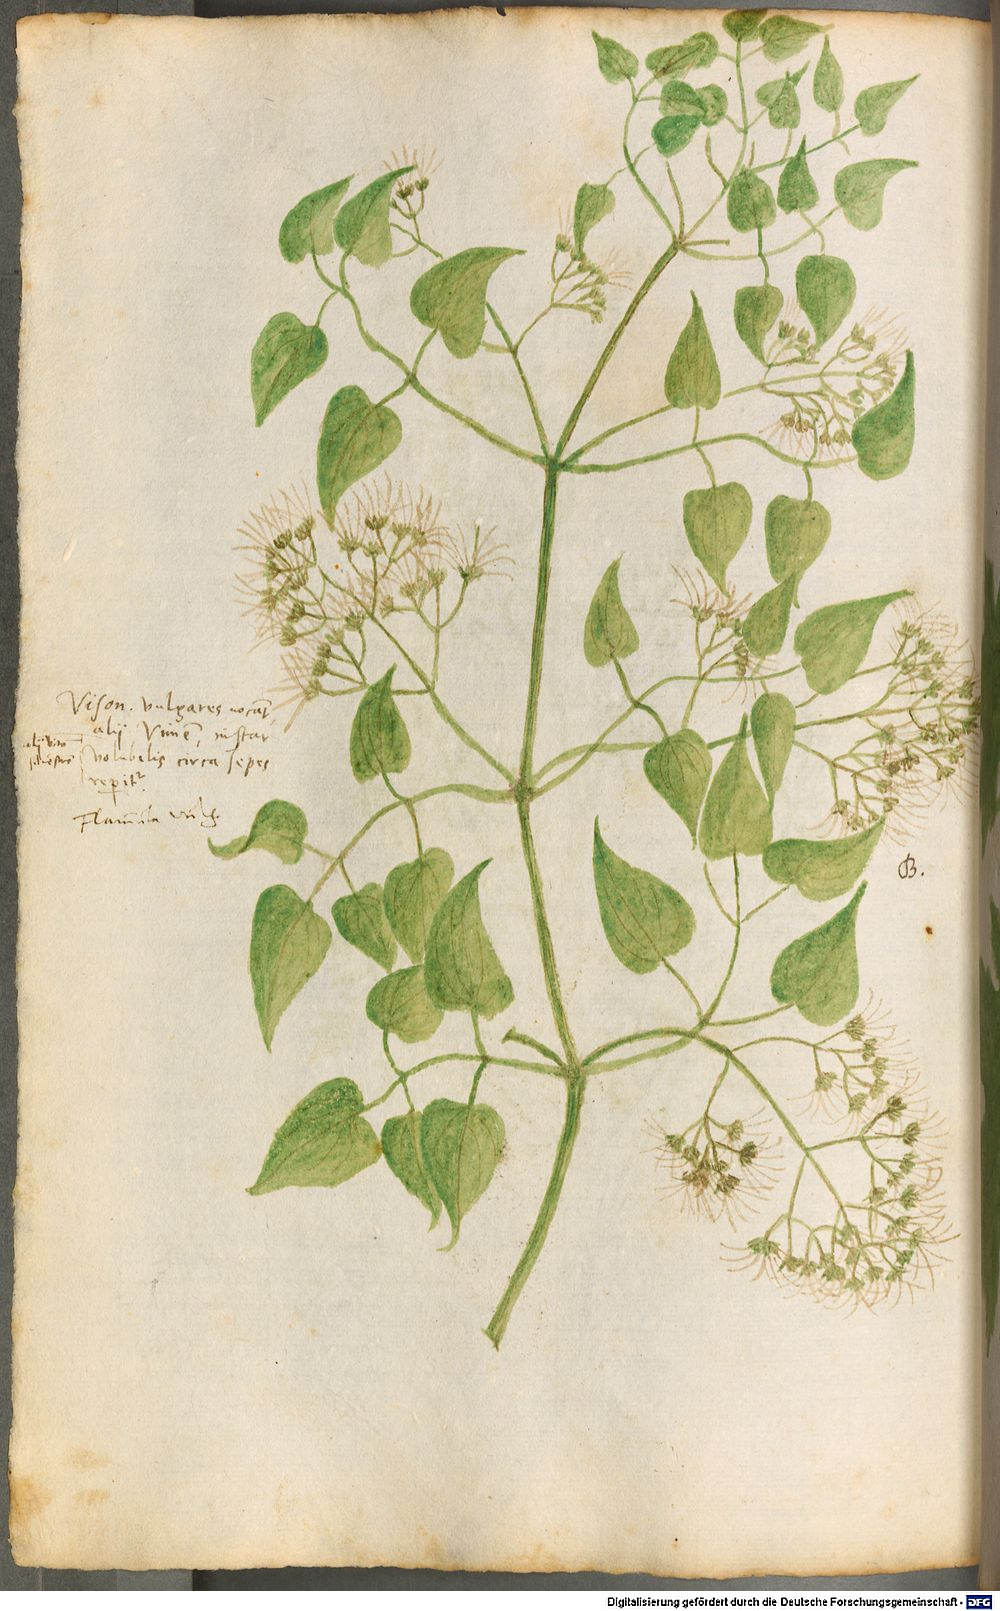 Vison. vulgares uocāt,
alij Vimē, instar
volubilis circa sepes
repit.
alij vito
Flam̄ula vulg.
B.
Digitalisierung gefördert durch die Deutsche Forschungsgemeinschaft - DFG